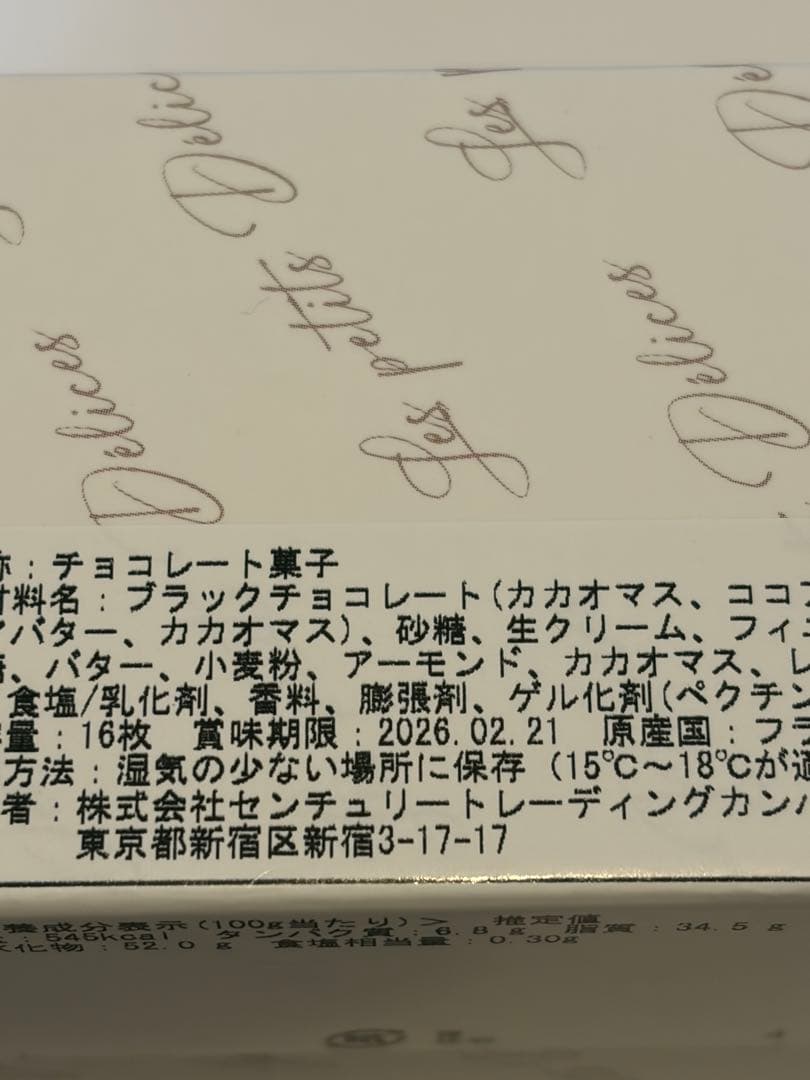 Délices
Les petits Délices
Les
Délices
称：チョコレート菓子
材料名：ブラックチョコレート(カカオマス、ココア
バター、カカオマス)、砂糖、生クリーム、フィ
、バター、小麦粉、アーモンド、カカオマス、
食塩/乳化剤、香料、膨張剤、ゲル化剤(ペクチン
量：16枚 賞味期限：2026.02.21 原産国：フラ
方法：湿気の少ない場所に保存 (15℃～18℃が適
者：株式会社センチュリートレーディングカンパ
東京都新宿区新宿3-17-17
養成分表示(100g当たり)＞ 推定値
：545kcal タンパク質：6.8 g 脂質：34.5 g
化物：52.0 g 食塩相当量：0.30g